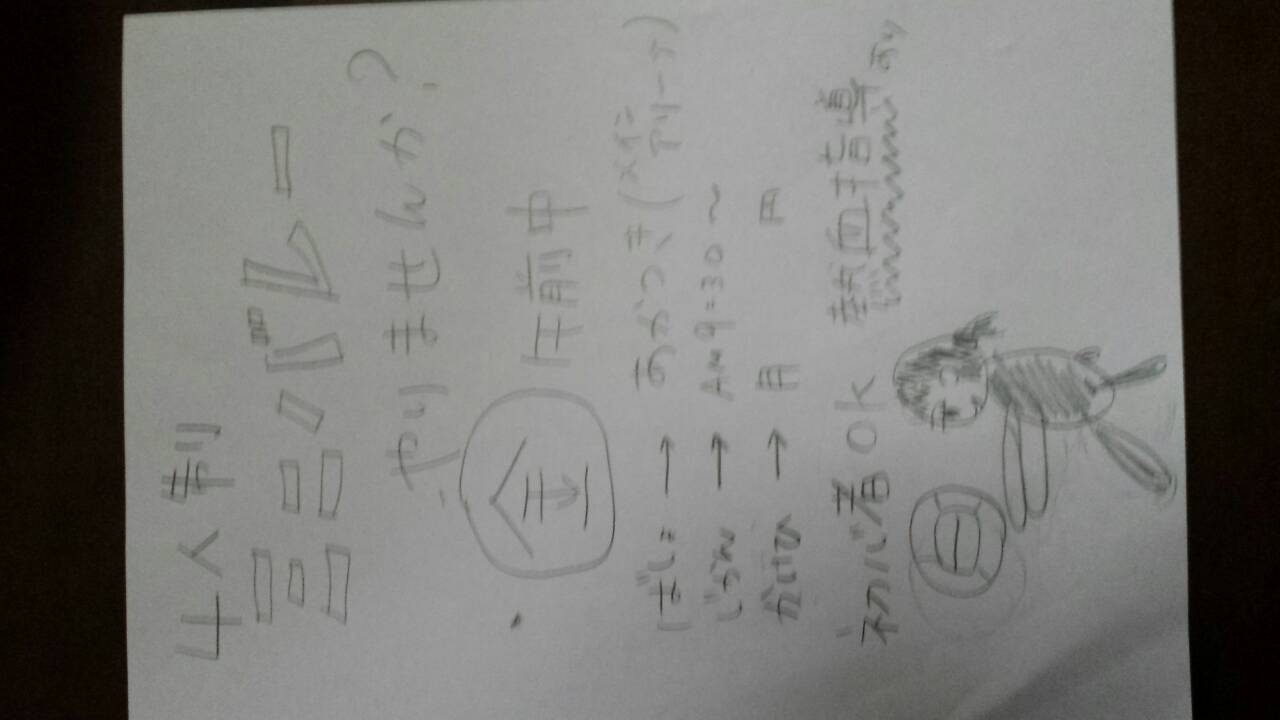 4人制
ミニバレー
やりませんか?
金 午前中
ばしょ → あかつき(メイン
アリーナ)
じかん → AM9:30~
かいひ → 月 円
初心者OK 熱血指導あり